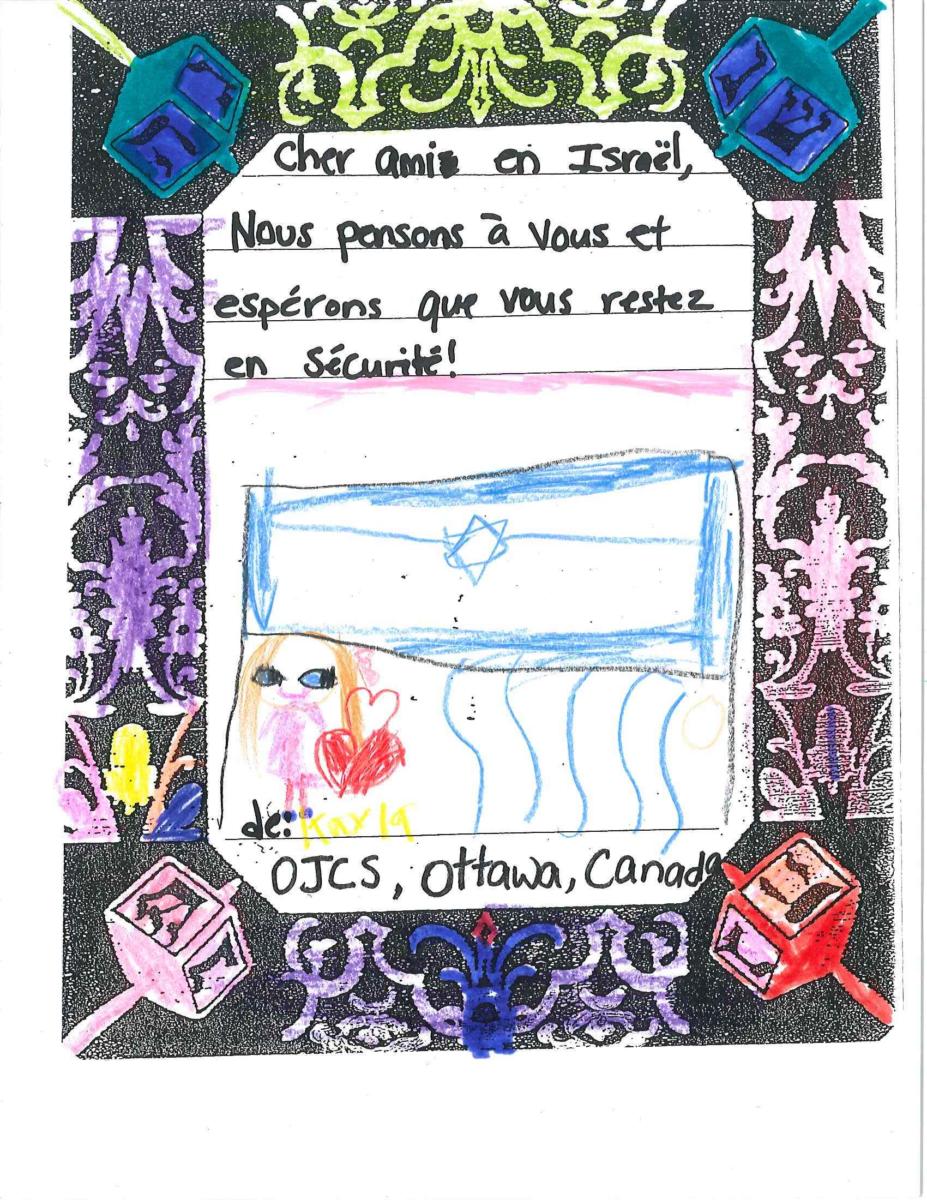 Cher ami en Israël,
Nous pensons à vous et
espérons que vous restez
en sécurité!
de: Kayla
OJCS, Ottawa, Canada
ה
נ
ש